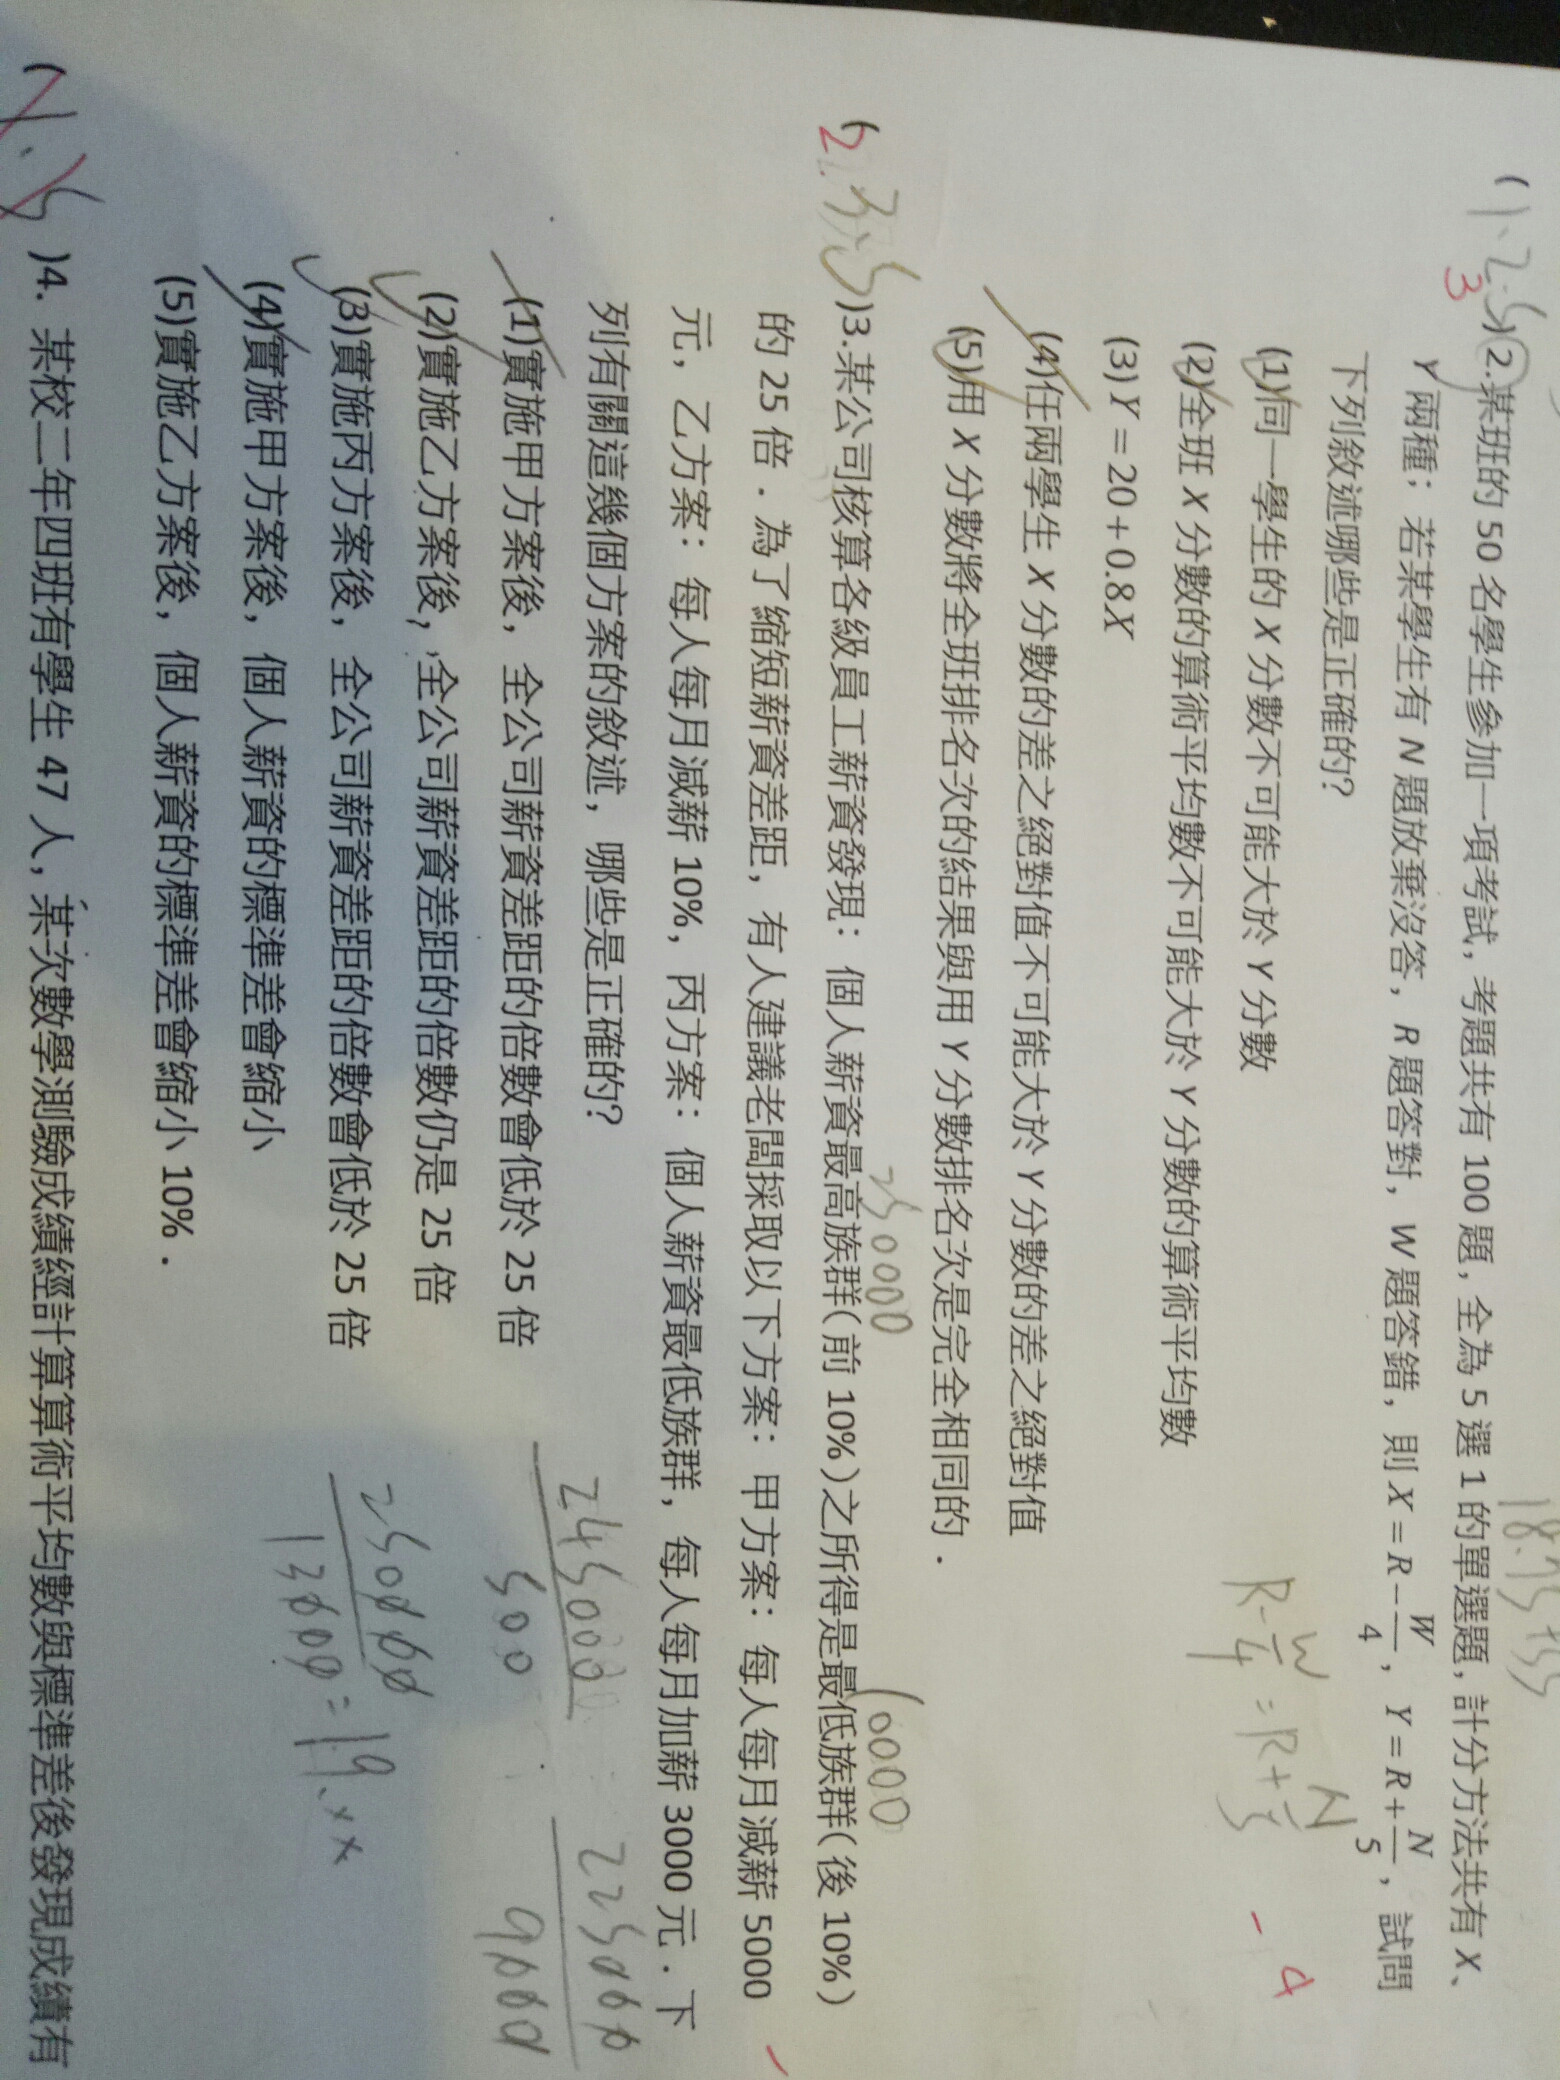 18.75+55
(1.2.5)2.某班的 50 名學生參加一項考試, 考題共有 100 題, 全為 5 選 1 的單選題, 計分方法共有 X、
3
Y 兩種; 若某學生有 N 題放棄沒答, R 題答對, W 題答錯, 則 X = R − W/4, Y = R + N/5, 試問
下列敘述哪些是正確的?
(1)同一學生的 X 分數不可能大於 Y 分數
R − W/4 = R + N/5
-4
(2)全班 X 分數的算術平均數不可能大於 Y 分數的算術平均數
(3) Y = 20 + 0.8X
(4)任兩學生 X 分數的差之絕對值不可能大於 Y 分數的差之絕對值
(5)用 X 分數將全班排名次的結果與用 Y 分數排名次是完全相同的．
250000
10000
(2.3.5)3.某公司核算各級員工薪資發現：個人薪資最高族群(前 10%)之所得是最低族群(後 10%)
的 25 倍．為了縮短薪資差距, 有人建議老闆採取以下方案：甲方案：每人每月減薪 5000
元, 乙方案：每人每月減薪 10%, 丙方案：個人薪資最低族群, 每人每月加薪 3000 元．下
列有關這幾個方案的敘述, 哪些是正確的?
(1)實施甲方案後, 全公司薪資差距的倍數會低於 25 倍
245000
500
225000
9000
(2)實施乙方案後, 全公司薪資差距的倍數仍是 25 倍
(3)實施丙方案後, 全公司薪資差距的倍數會低於 25 倍
250000
13000 = 19.xx
(4)實施甲方案後, 個人薪資的標準差會縮小
(5)實施乙方案後, 個人薪資的標準差會縮小 10%．
)4. 某校二年四班有學生 47 人, 某次數學測驗成績經計算算術平均數與標準差後發現成績有